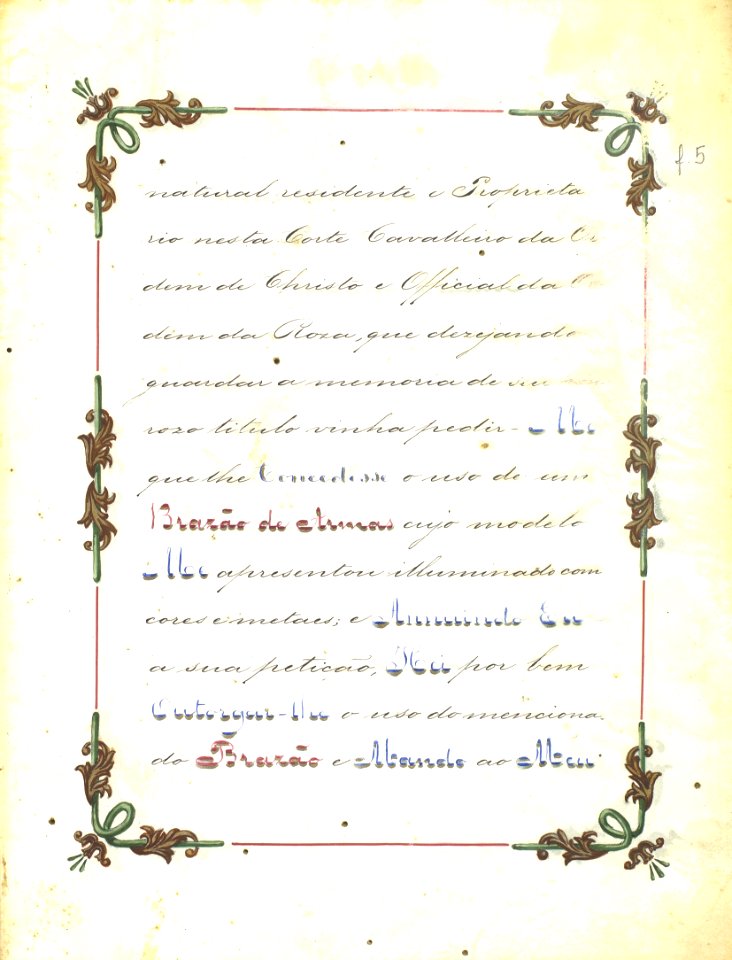 f. 5
natural residente e Proprieta
rio nesta Corte Cavalleiro da Or
dem de Christo e Official da
dem da Roza, que dezejando
guardar a memoria de seu
rozo titulo vinha pedir-Me
que lhe Concedesse o uso de um
Brazão de Armas cujo modelo
Me apresentou illuminado com
cores e metaes; e Annuindo Eu
a sua petição, Hei por bem
Outorgar-lhe o uso do menciona
do Brazão e Mando ao Meu